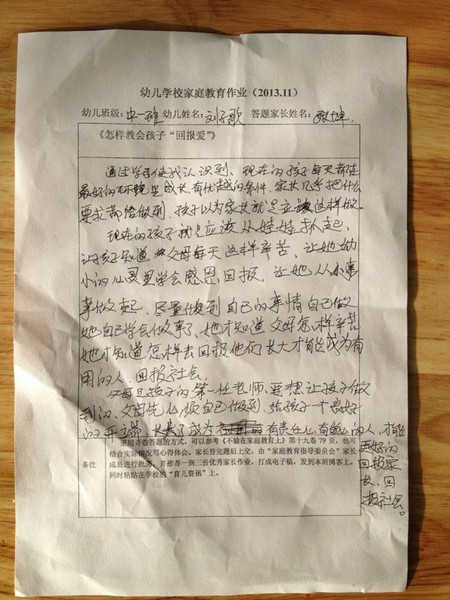 幼儿学校家庭教育作业（2013.11）
幼儿班级：中一班 幼儿姓名：刘子歌 答题家长姓名：
《怎样教会孩子“回报爱”》
通过学习使我认识到、现在的孩子每天都在
最好的环境里成长、有优越的条件、家长几乎把什么
要求都给做到、孩子以为家长就是应该这样做。
现在的孩子就是应该从娃娃抓起，
让孩子知道父母每天这样辛苦，让她幼
小的心灵里学会感恩、回报，让她从小事
事做起、尽量做到自己的事情自己做
她自己学会做事了，她才知道父母怎样辛苦
她才知道怎样去回报他们长大才能成为有
用的人、回报社会。
父母是孩子的第一任老师、要想让孩子做
到的、父母先必须自己做到、给孩子一个良好
的 成为 有责任心有 的人，才能
更好的
回报家
长、回
报社会。
备注
依照讲卷答题的方式，可以参考《不输在家庭教育上》第十九卷79页，也可
结合实际情况写心得体会。家长答完题后上交，由“家庭教育指导委员会”家长
成员进行批阅，并推荐一到三份优秀家长作业，打成电子稿，发到本班博客上，
同时粘贴在学校的“育儿资讯”上。